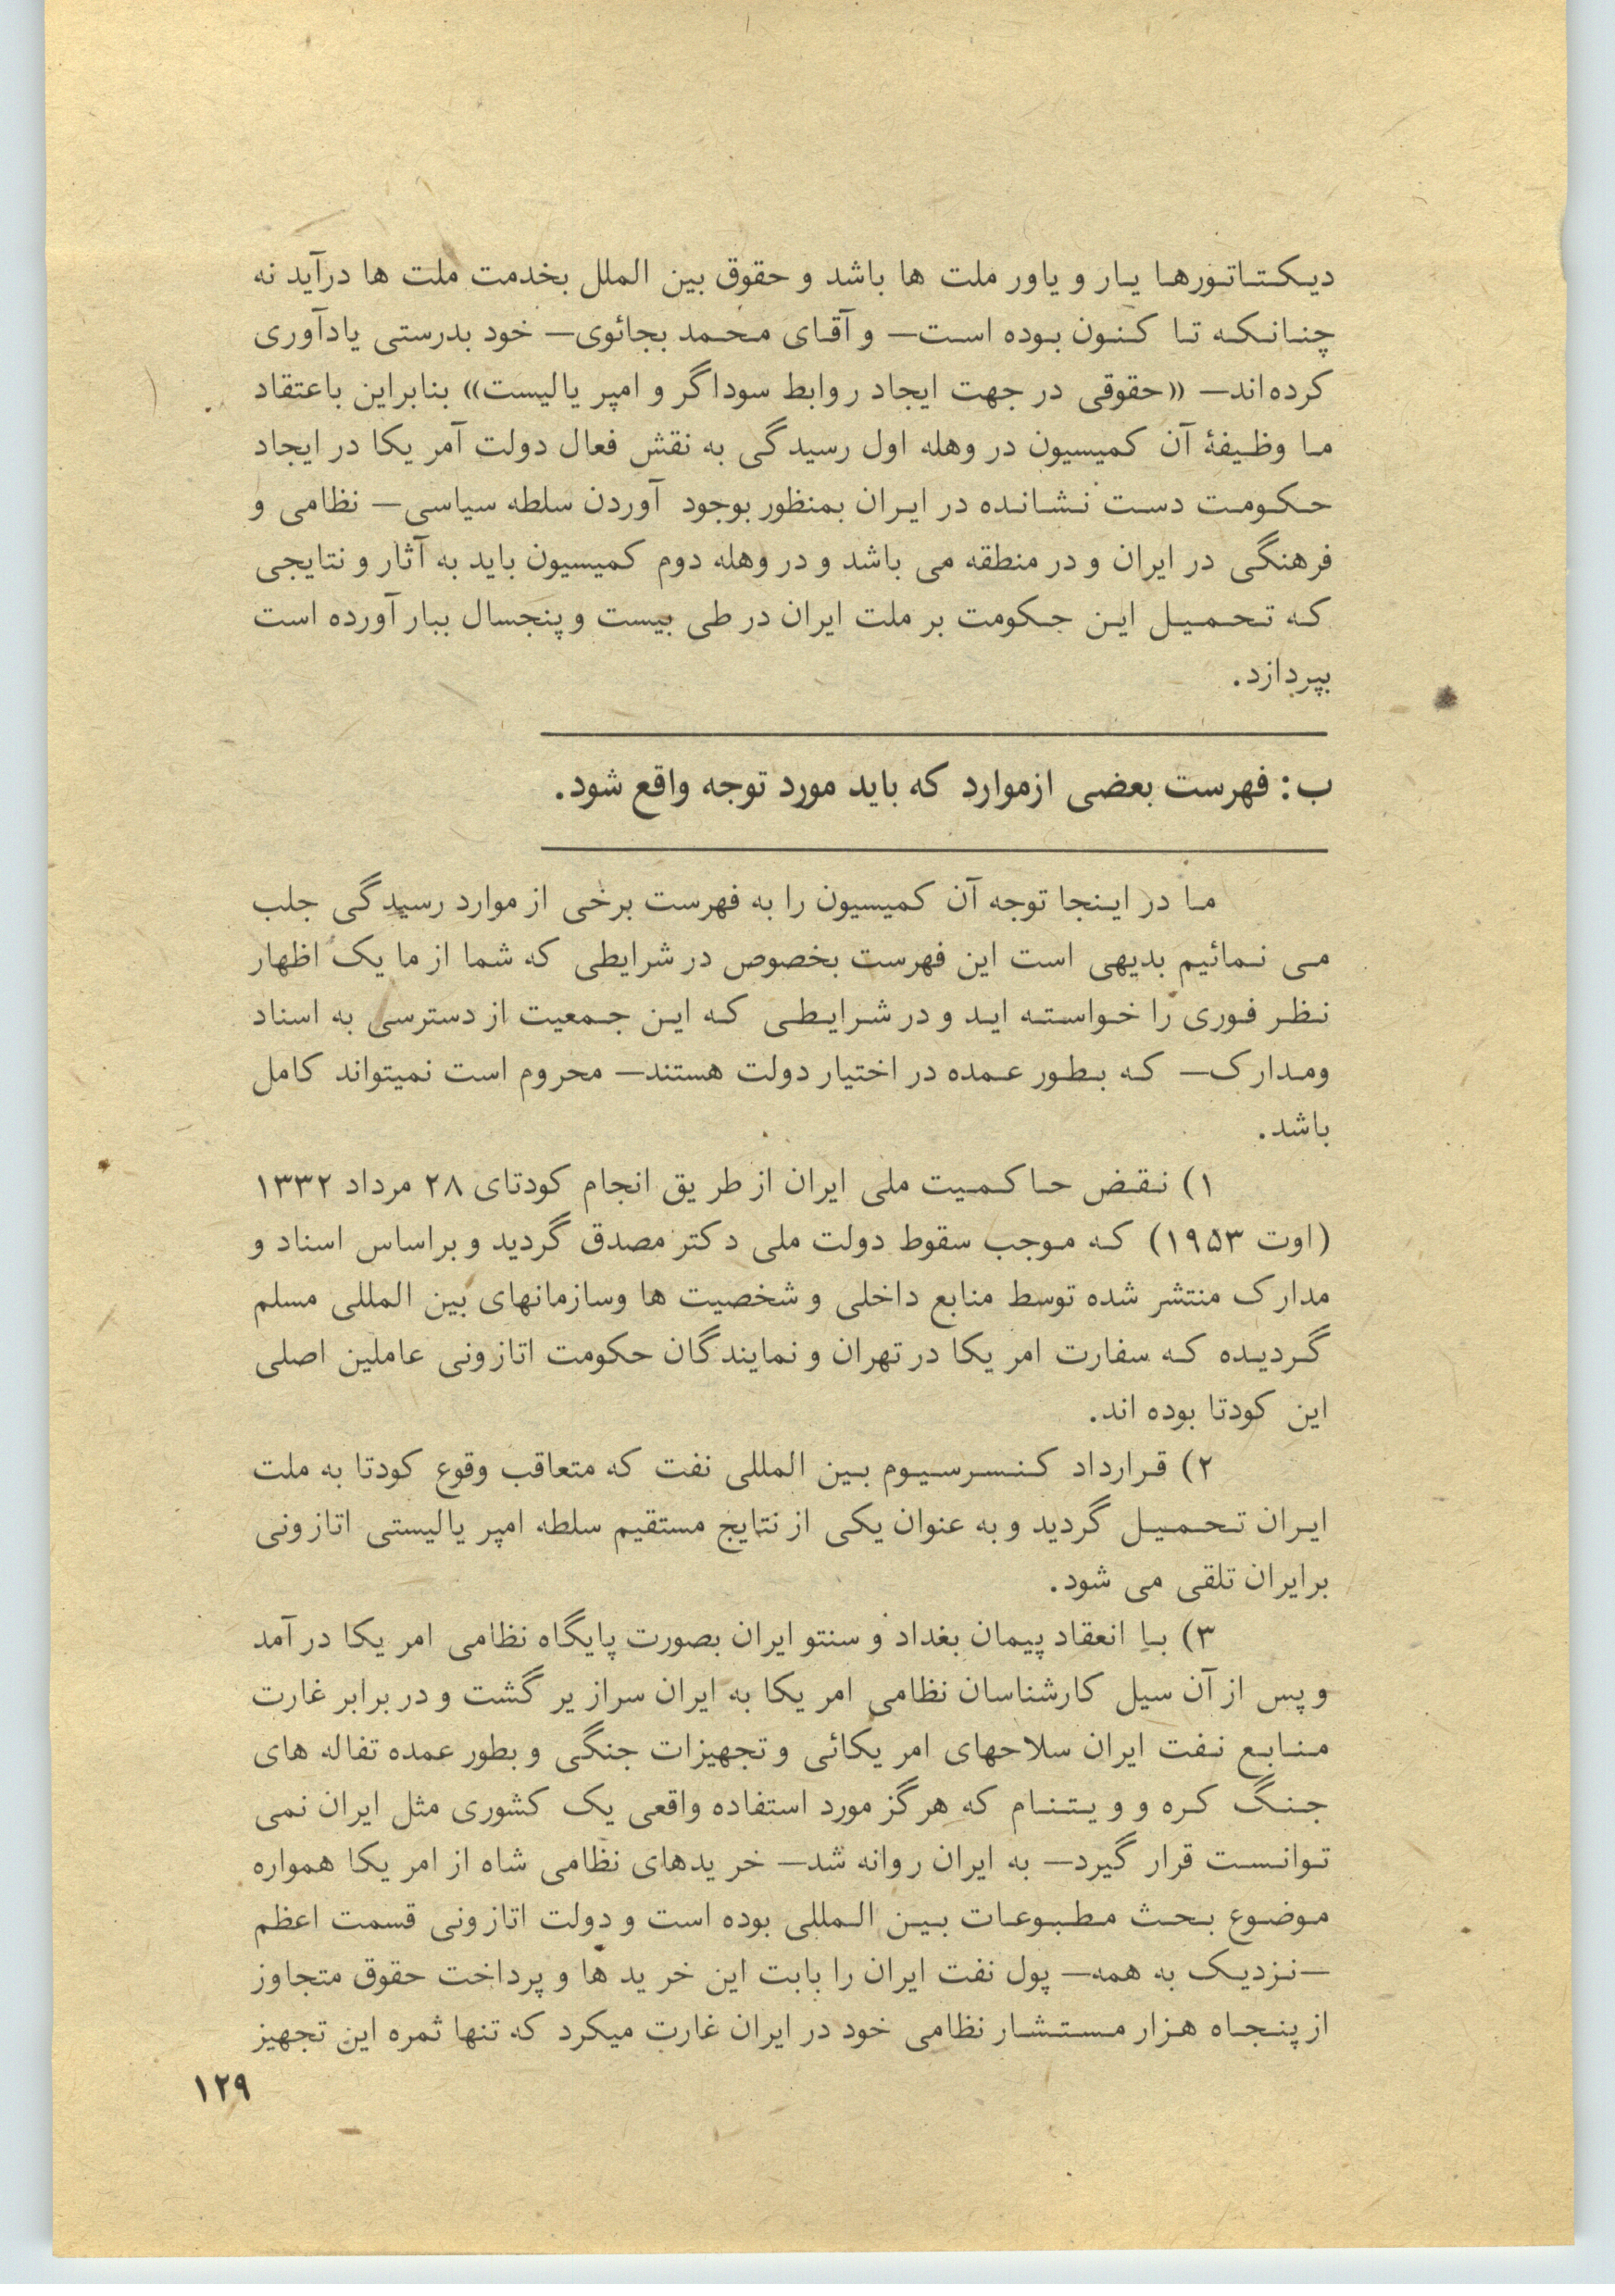 دیکتاتورها یار و یاور ملت ها باشد و حقوق بین الملل بخدمت ملت ها درآید نه
چنانکه تا کنون بوده است— و آقای محمد بجائوی— خود بدرستی یادآوری
کرده‌اند— «حقوقی در جهت ایجاد روابط سوداگر و امپریالیست» بنابراین باعتقاد
ما وظیفهٔ آن کمیسیون در وهله اول رسیدگی به نقش فعال دولت آمریکا در ایجاد
حکومت دست نشانده در ایران بمنظور بوجود آوردن سلطه سیاسی— نظامی و
فرهنگی در ایران و در منطقه می باشد و در وهله دوم کمیسیون باید به آثار و نتایجی
که تحمیل این حکومت بر ملت ایران در طی بیست و پنجسال ببار آورده است
بپردازد.
ب: فهرست بعضی ازموارد که باید مورد توجه واقع شود.
ما در اینجا توجه آن کمیسیون را به فهرست برخی از موارد رسیدگی جلب
می نمائیم بدیهی است این فهرست بخصوص در شرایطی که شما از ما یک اظهار
نظر فوری را خواسته اید و در شرایطی که این جمعیت از دسترسی به اسناد
ومدارک— که بطور عمده در اختیار دولت هستند— محروم است نمیتواند کامل
باشد.
۱) نقض حاکمیت ملی ایران از طریق انجام کودتای ۲۸ مرداد ۱۳۳۲
(اوت ۱۹۵۳) که موجب سقوط دولت ملی دکتر مصدق گردید و براساس اسناد و
مدارک منتشر شده توسط منابع داخلی و شخصیت ها وسازمانهای بین المللی مسلم
گردیده که سفارت امریکا در تهران و نمایندگان حکومت اتازونی عاملین اصلی
این کودتا بوده اند.
۲) قرارداد کنسرسیوم بین المللی نفت که متعاقب وقوع کودتا به ملت
ایران تحمیل گردید و به عنوان یکی از نتایج مستقیم سلطه امپریالیستی اتازونی
برایران تلقی می شود.
۳) با انعقاد پیمان بغداد و سنتو ایران بصورت پایگاه نظامی امریکا در آمد
و پس از آن سیل کارشناسان نظامی امریکا به ایران سرازیر گشت و در برابر غارت
منابع نفت ایران سلاحهای امریکائی و تجهیزات جنگی و بطور عمده تفاله های
جنگ کره و ویتنام که هرگز مورد استفاده واقعی یک کشوری مثل ایران نمی
توانست قرار گیرد— به ایران روانه شد— خریدهای نظامی شاه از امریکا همواره
موضوع بحث مطبوعات بین المللی بوده است و دولت اتازونی قسمت اعظم
—نزدیک به همه— پول نفت ایران را بابت این خرید ها و پرداخت حقوق متجاوز
از پنجاه هزار مستشار نظامی خود در ایران غارت میکرد که تنها ثمره این تجهیز
۱۲۹